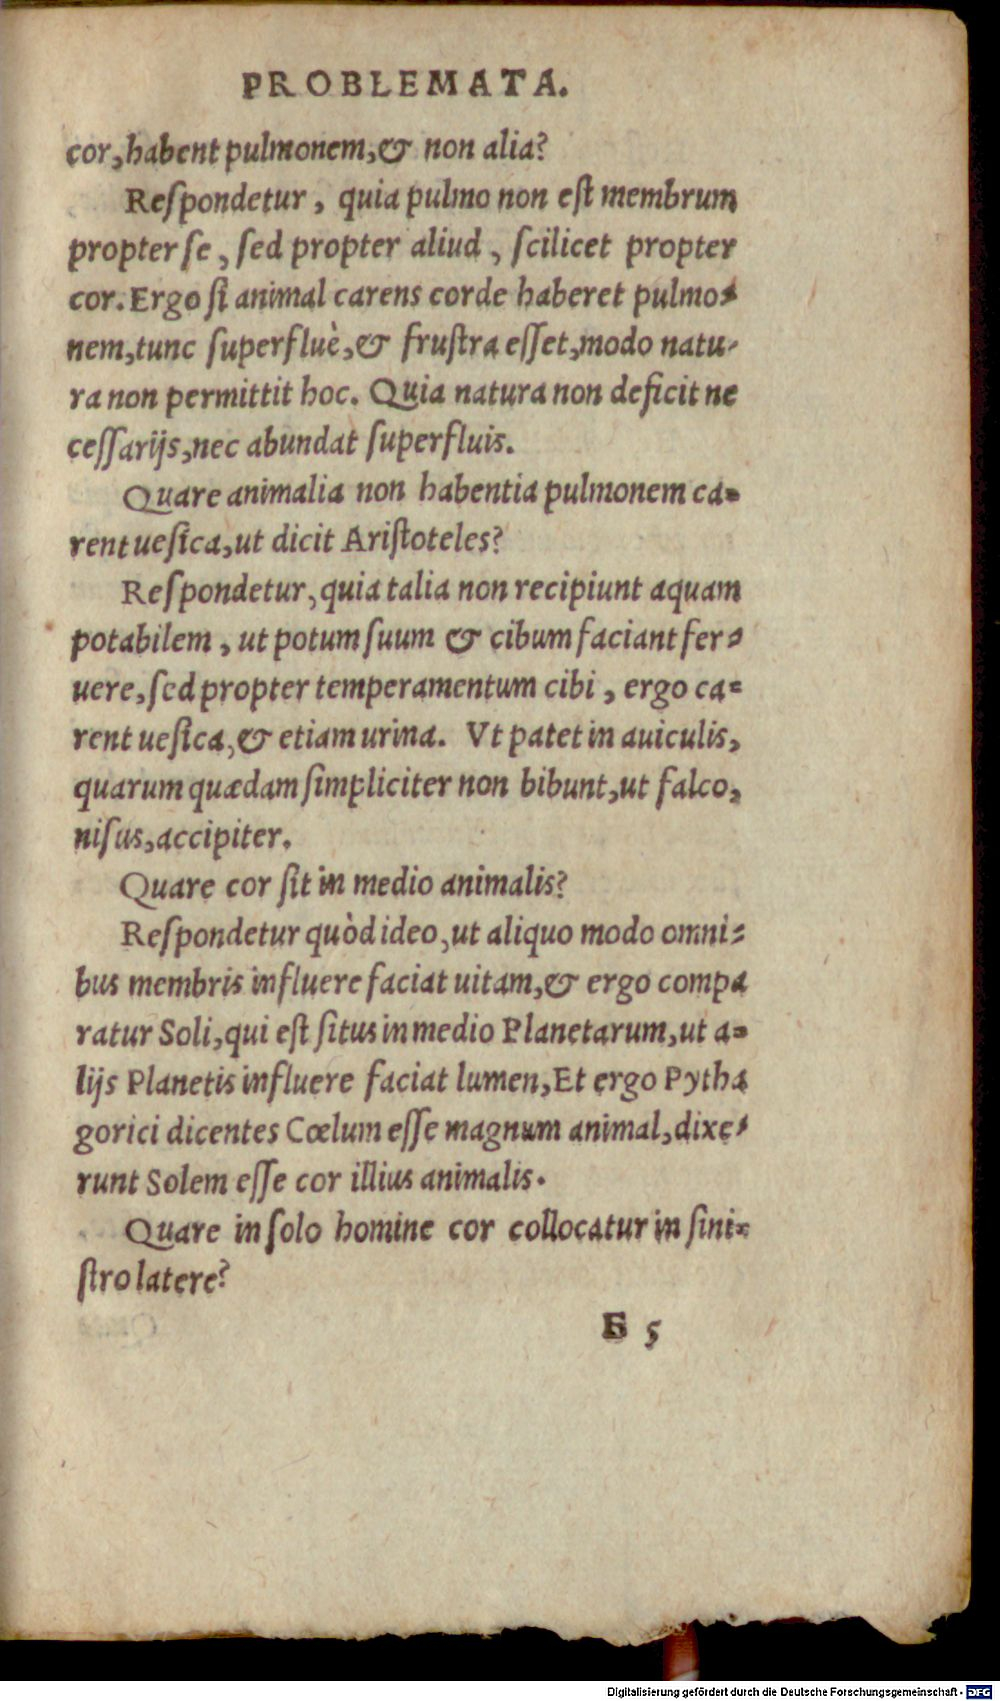 PROBLEMATA.
cor, habent pulmonem, & non alia?
Respondetur, quia pulmo non est membrum
propter se, sed propter aliud, scilicet propter
cor. Ergo si animal carens corde haberet pulmo-
nem, tunc superfluè, & frustra esset, modo natu-
ra non permittit hoc. Quia natura non deficit ne
cessarijs, nec abundat superfluis.
Quare animalia non habentia pulmonem ca-
rent uesica, ut dicit Aristoteles?
Respondetur, quia talia non recipiunt aquam
potabilem, ut potum suum & cibum faciant fer-
uere, sed propter temperamentum cibi, ergo ca-
rent uesica, & etiam urina. Vt patet in auiculis,
quarum quædam simpliciter non bibunt, ut falco,
nisus, accipiter.
Quare cor sit in medio animalis?
Respondetur quòd ideo, ut aliquo modo omni-
bus membris influere faciat uitam, & ergo compa
ratur Soli, qui est situs in medio Planetarum, ut a-
lijs Planetis influere faciat lumen, Et ergo Pytha
gorici dicentes Cœlum esse magnum animal, dixe-
runt Solem esse cor illius animalis.
Quare in solo homine cor collocatur in sini-
stro latere?
B 5
Digitalisierung gefördert durch die Deutsche Forschungsgemeinschaft - DFG